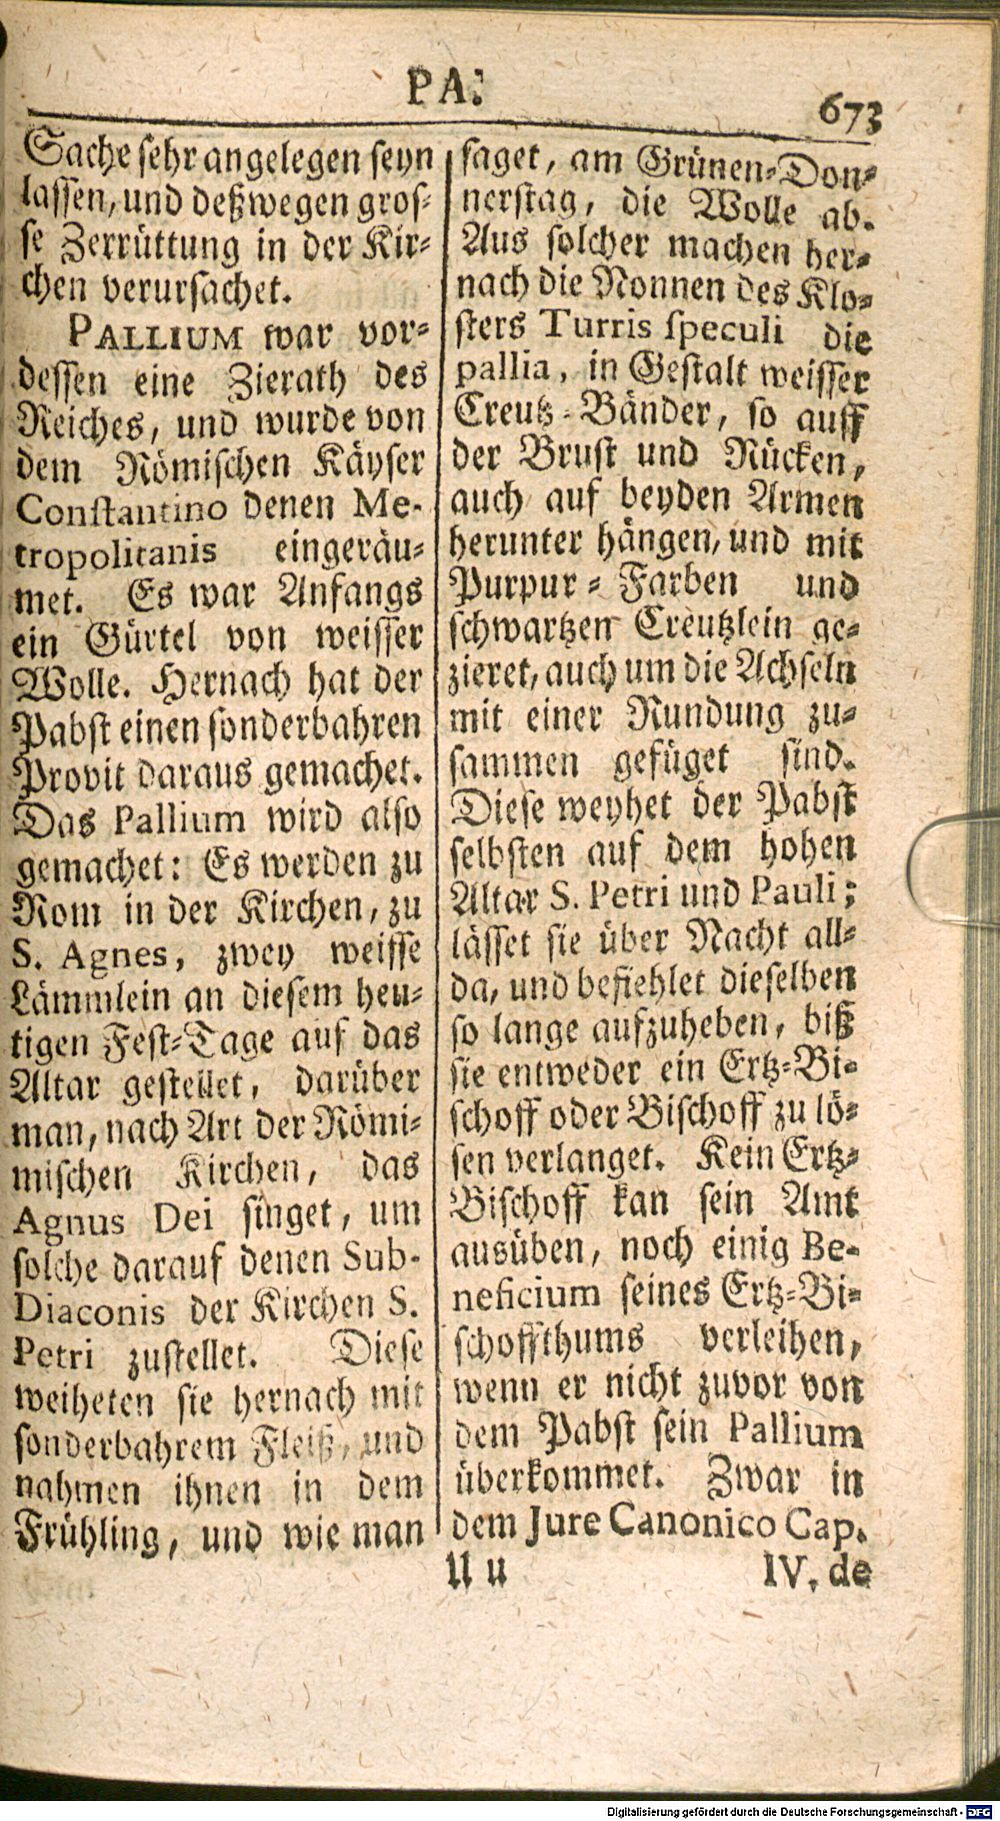 PA.
673
Sache sehr angelegen seyn
lassen, und deßwegen gros-
se Zerrüttung in der Kir-
chen verursachet.
PALLIUM war vor-
dessen eine Zierath des
Reiches, und wurde von
dem Römischen Käyser
Constantino denen Me-
tropolitanis eingeräu-
met. Es war Anfangs
ein Gürtel von weisser
Wolle. Hernach hat der
Pabst einen sonderbahren
Provit daraus gemachet.
Das Pallium wird also
gemachet: Es werden zu
Rom in der Kirchen, zu
S. Agnes, zwey weisse
Lämmlein an diesem heu-
tigen Fest-Tage auf das
Altar gestellet, darüber
man, nach Art der Römi-
mischen Kirchen, das
Agnus Dei singet, um
solche darauf denen Sub-
Diaconis der Kirchen S.
Petri zustellet. Diese
weiheten sie hernach mit
sonderbahrem Fleiß, und
nahmen ihnen in dem
Frühling, und wie man
saget, am Grünen-Don-
nerstag, die Wolle ab.
Aus solcher machen her-
nach die Nonnen des Klo-
sters Turris speculi die
pallia, in Gestalt weisser
Creutz-Bänder, so auff
der Brust und Rücken,
auch auf beyden Armen
herunter hängen, und mit
Purpur-Farben und
schwartzen Creutzlein ge-
zieret, auch um die Achseln
mit einer Rundung zu-
sammen gefüget sind.
Diese weyhet der Pabst
selbsten auf dem hohen
Altar S. Petri und Pauli;
lässet sie über Nacht all-
da, und befiehlet dieselben
so lange aufzuheben, biß
sie entweder ein Ertz-Bi-
schoff oder Bischoff zu lö-
sen verlanget. Kein Ertz-
Bischoff kan sein Amt
ausüben, noch einig Be-
neficium seines Ertz-Bi-
schoffthums verleihen,
wenn er nicht zuvor von
dem Pabst sein Pallium
überkommet. Zwar in
dem Jure Canonico Cap.
Uu
IV. de
Digitalisierung gefördert durch die Deutsche Forschungsgemeinschaft - DFG